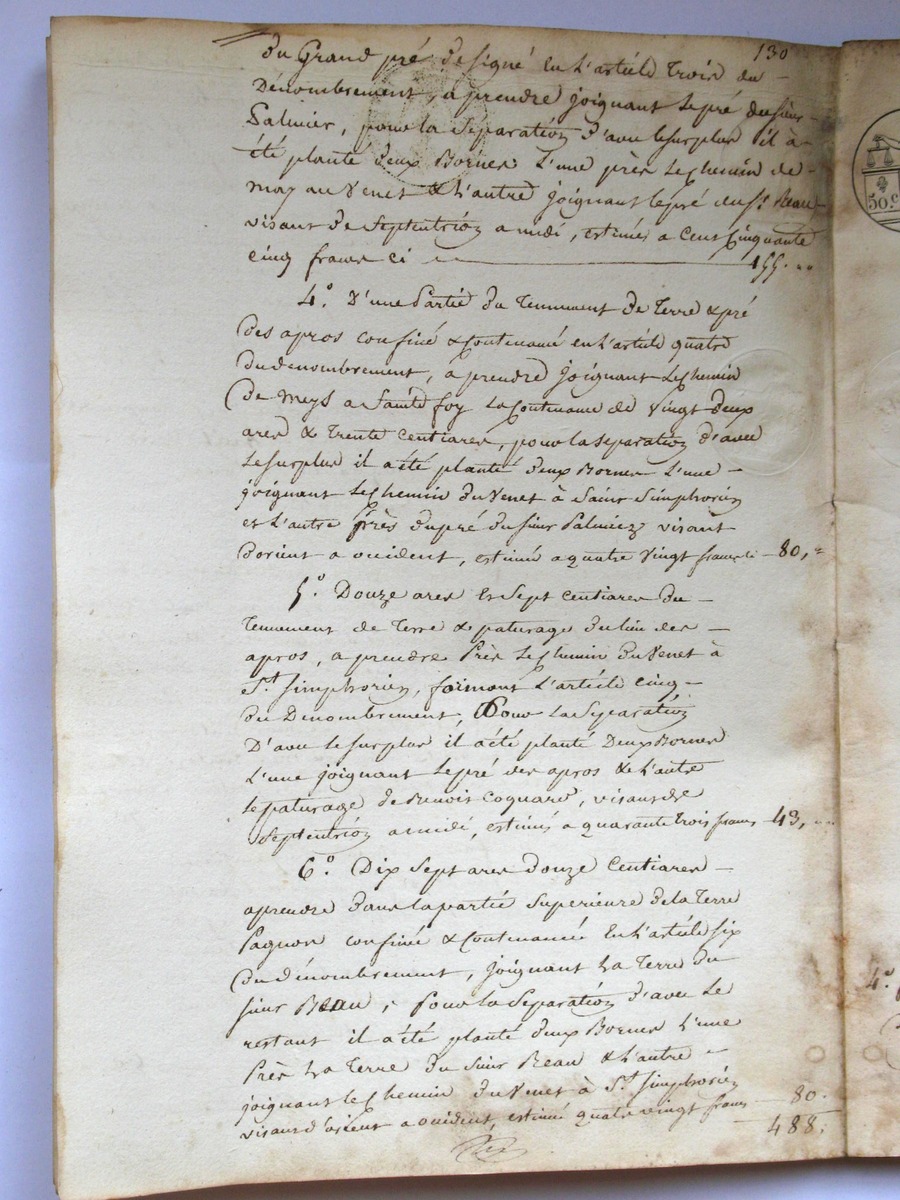 130
du Grand pré designé en l'article trois du
Dénombrement, a prendre joignant le pré du sieur
Palmier, pour la Séparation d'avec le surplus il à
été planté deux Bornes L'une près le chemin de
may au Venet & L'autre joignant le pré du Sr. Reau
visant de Septentrion a midi, estimé a Cent Cinquante
cinq francs ci 155. "
4.° D'une Partie du Tennement de Terre & pré
des apros confiné & Contenancé en l'article quatre
du denombrement, a prendre joignant le Chemin
De Meys a Sainte foy La Contenance de Vingt deux
ares & Trente Centiares, pour la separation d'avec
Le surplus il a été planté deux Bornes L'une
joignant le Chemin du Venet à Saint Simphorien
et L'autre Près du pré du sieur Palmiez visant
Dorient a occident, estimé a quatre vingt francs ci 80, "
5.° Douze ares Et Sept Centiares du
Tennement de Terre & paturage du lieu des
apros, a prendre Près le Chemin du Venet à
St. Simphorien, formant L'article cinq
du Dénombrement, Pour La Separation
D'avec le surplus il a été planté Deux Bornes
L'une joignant le pré des apros & L'autre
le paturage de Benoit Coquard, visant de
Septentrion a midi, estimé a quarante trois francs 43, "
6.° Dix Sept ares douze Centiares
a prendre dans la partie Superieure de la Terre
Pagnon confiné & Contenancé En l'article six
Du dénombrement, joignant La Terre du
sieur Reau, Pour la Separation d'avec Le
restant il a été planté deux Bornes L'une
Près La Terre du Sieur Reau & L'autre
joignant le Chemin du Venet à St. Simphorien
visant d'orient a occident, estimé quatre vingt francs 80.
488.
50.C
4.°